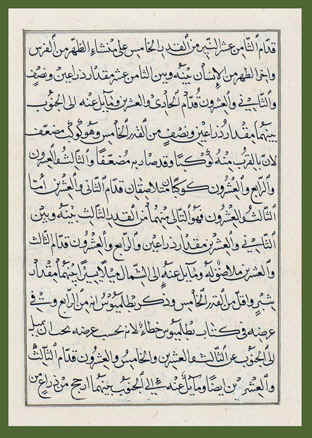 قدّام الثامن عشر النيّر من القدر الخامس على منشاء الظهر من الفرس
واخر الظهر من الانسان بينه وبين الثامن عشر مقدار ذراعين ونصف
والثاني والعشرون قدّام الحادى والعشرين ومايل عنه الى الجنوب
بينهما مقدار ذراعين ونصف من القدر الخامس وهو كوكب مضعف
لان بالقرب منه كوكبا وقد صار به مضعفا والثالث والعشرون
والرابع والعشرون كوكبان متلاصقان قدّام الثانى والعشرين امّا
الثالث والعشرون فهو التالى منهما من القدر الثالث بينه وبين
الثاني والعشرين مقدار ذراعين والرابع والعشرون قدّام الثالث
والعشرين ملاصق له ومايل عنه الى الشمال ميلا يسيرا بينهما مقدار
شبر واقل من القدر الخامس وذكر بطلميوس انه من الرابع وقع
عرضه فى كتاب بطلميوس خطاء لانه بحسب عرضه يجب ان يميل
الى الجنوب عن الثالث والعشرين والخامس والعشرون قدّام الثالث
والعشرين ايضا ومايل عنه الى الجنوب بينهما ارجح من ذراع من